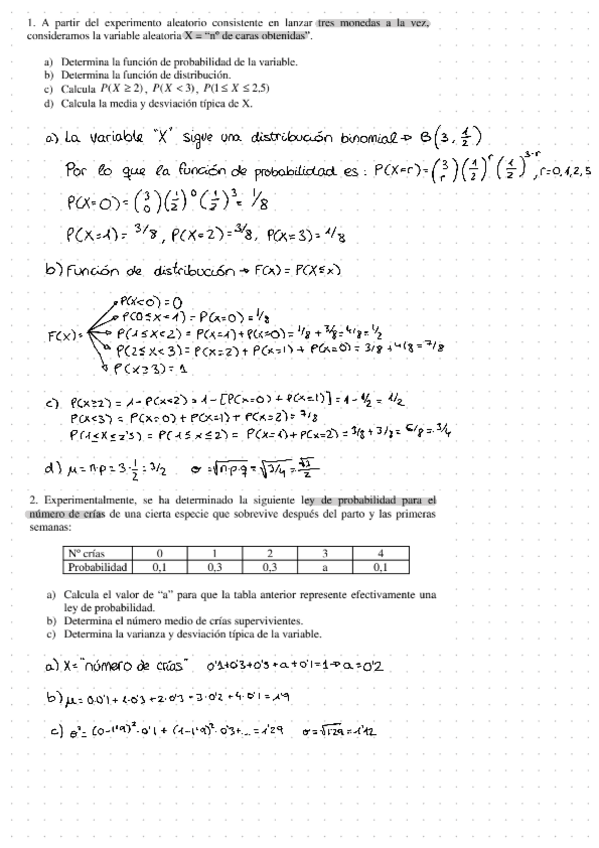 1. A partir del experimento aleatorio consistente en lanzar tres monedas a la vez,
consideramos la variable aleatoria X = “nº de caras obtenidas”.
a) Determina la función de probabilidad de la variable.
b) Determina la función de distribución.
c) Calcula P(X ≥ 2), P(X < 3), P(1 ≤ X ≤ 2,5)
d) Calcula la media y desviación típica de X.
a) La variable "X" sigue una distribución binomial → B(3, 1/2)
Por lo que la función de probabilidad es: P(X=r) = (3 r) (1/2)^r (1/2)^3-r, r=0,1,2,3
P(X=0) = (3 0) (1/2)^0 (1/2)^3 = 1/8
P(X=1) = 3/8, P(X=2) = 3/8, P(X=3) = 1/8
b) Función de distribución → F(x) = P(X≤x)
P(X<0) = 0
P(0≤X<1) = P(X=0) = 1/8
F(X) = P(1≤X<2) = P(X=1) + P(X=0) = 1/8 + 3/8 = 4/8 = 1/2
P(2≤X<3) = P(X=2) + P(X=1) + P(X=0) = 3/8 + 4/8 = 7/8
P(X≥3) = 1
c) P(X≥2) = 1 - P(X<2) = 1 - [P(X=0) + P(X=1)] = 1 - 1/2 = 1/2
P(X<3) = P(X=0) + P(X=1) + P(X=2) = 7/8
P(1≤X≤2'5) = P(1≤X≤2) = P(X=1) + P(X=2) = 3/8 + 3/8 = 6/8 = 3/4
d) μ = n·p = 3·1/2 = 3/2 σ = √n·p·q = √3/4 = √3/2
2. Experimentalmente, se ha determinado la siguiente ley de probabilidad para el
número de crías de una cierta especie que sobrevive después del parto y las primeras
semanas:
Nº crías 0 1 2 3 4
Probabilidad 0,1 0,3 0,3 a 0,1
a) Calcula el valor de “a” para que la tabla anterior represente efectivamente una
ley de probabilidad.
b) Determina el número medio de crías supervivientes.
c) Determina la varianza y desviación típica de la variable.
a) X = "número de crías" 0'1+0'3+0'3+a+0'1=1 → a=0'2
b) μ = 0·0'1 + 1·0'3 + 2·0'3 + 3·0'2 + 4·0'1 = 1'9
c) σ² = (0-1'9)²·0'1 + (1-1'9)²·0'3+... = 1'29 σ = √1'29 = 1'12